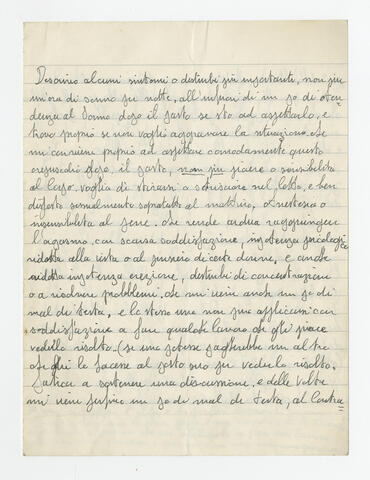 Descrivo alcuni sintomi o disturbi più importanti, non più
un'ora di sonno per notte, all'infuori di un po di
denza al sonno dopo il pasto se sto ad aspettarlo, e
provo proprio se non voglio aggravare la situazione. Se
mi conviene proprio ad aspettare comodamente questo
dopo il pasto, non più piacere o sensibilità
al capo. voglia di stirarsi o strisciare nel letto, e ben
disposto sessualmente sopratutto al mattino, Anestesia o
insensibilità al pene. che rende ardua raggiungere
l'orgasmo, con scarsa soddisfazione, impotenza psicologica
ridotta alla vista o al pensiero di certe donne, e anche
ridotta impotenza erezione, disturbi di concentrazione
o a risolvere problemi, che mi viene anche un po di
mal di testa, e lo stesso uno non può applicarsi con
soddisfazione a fare qualche lavoro che gli piace
vederlo risolto. (se uno potesse pagherebbe un altro
che gli lo facesse al posto suo per vederlo risolto.
Fatica a sostenere una discussione, e delle volte
mi viene sempre un po di mal di testa, al contra=